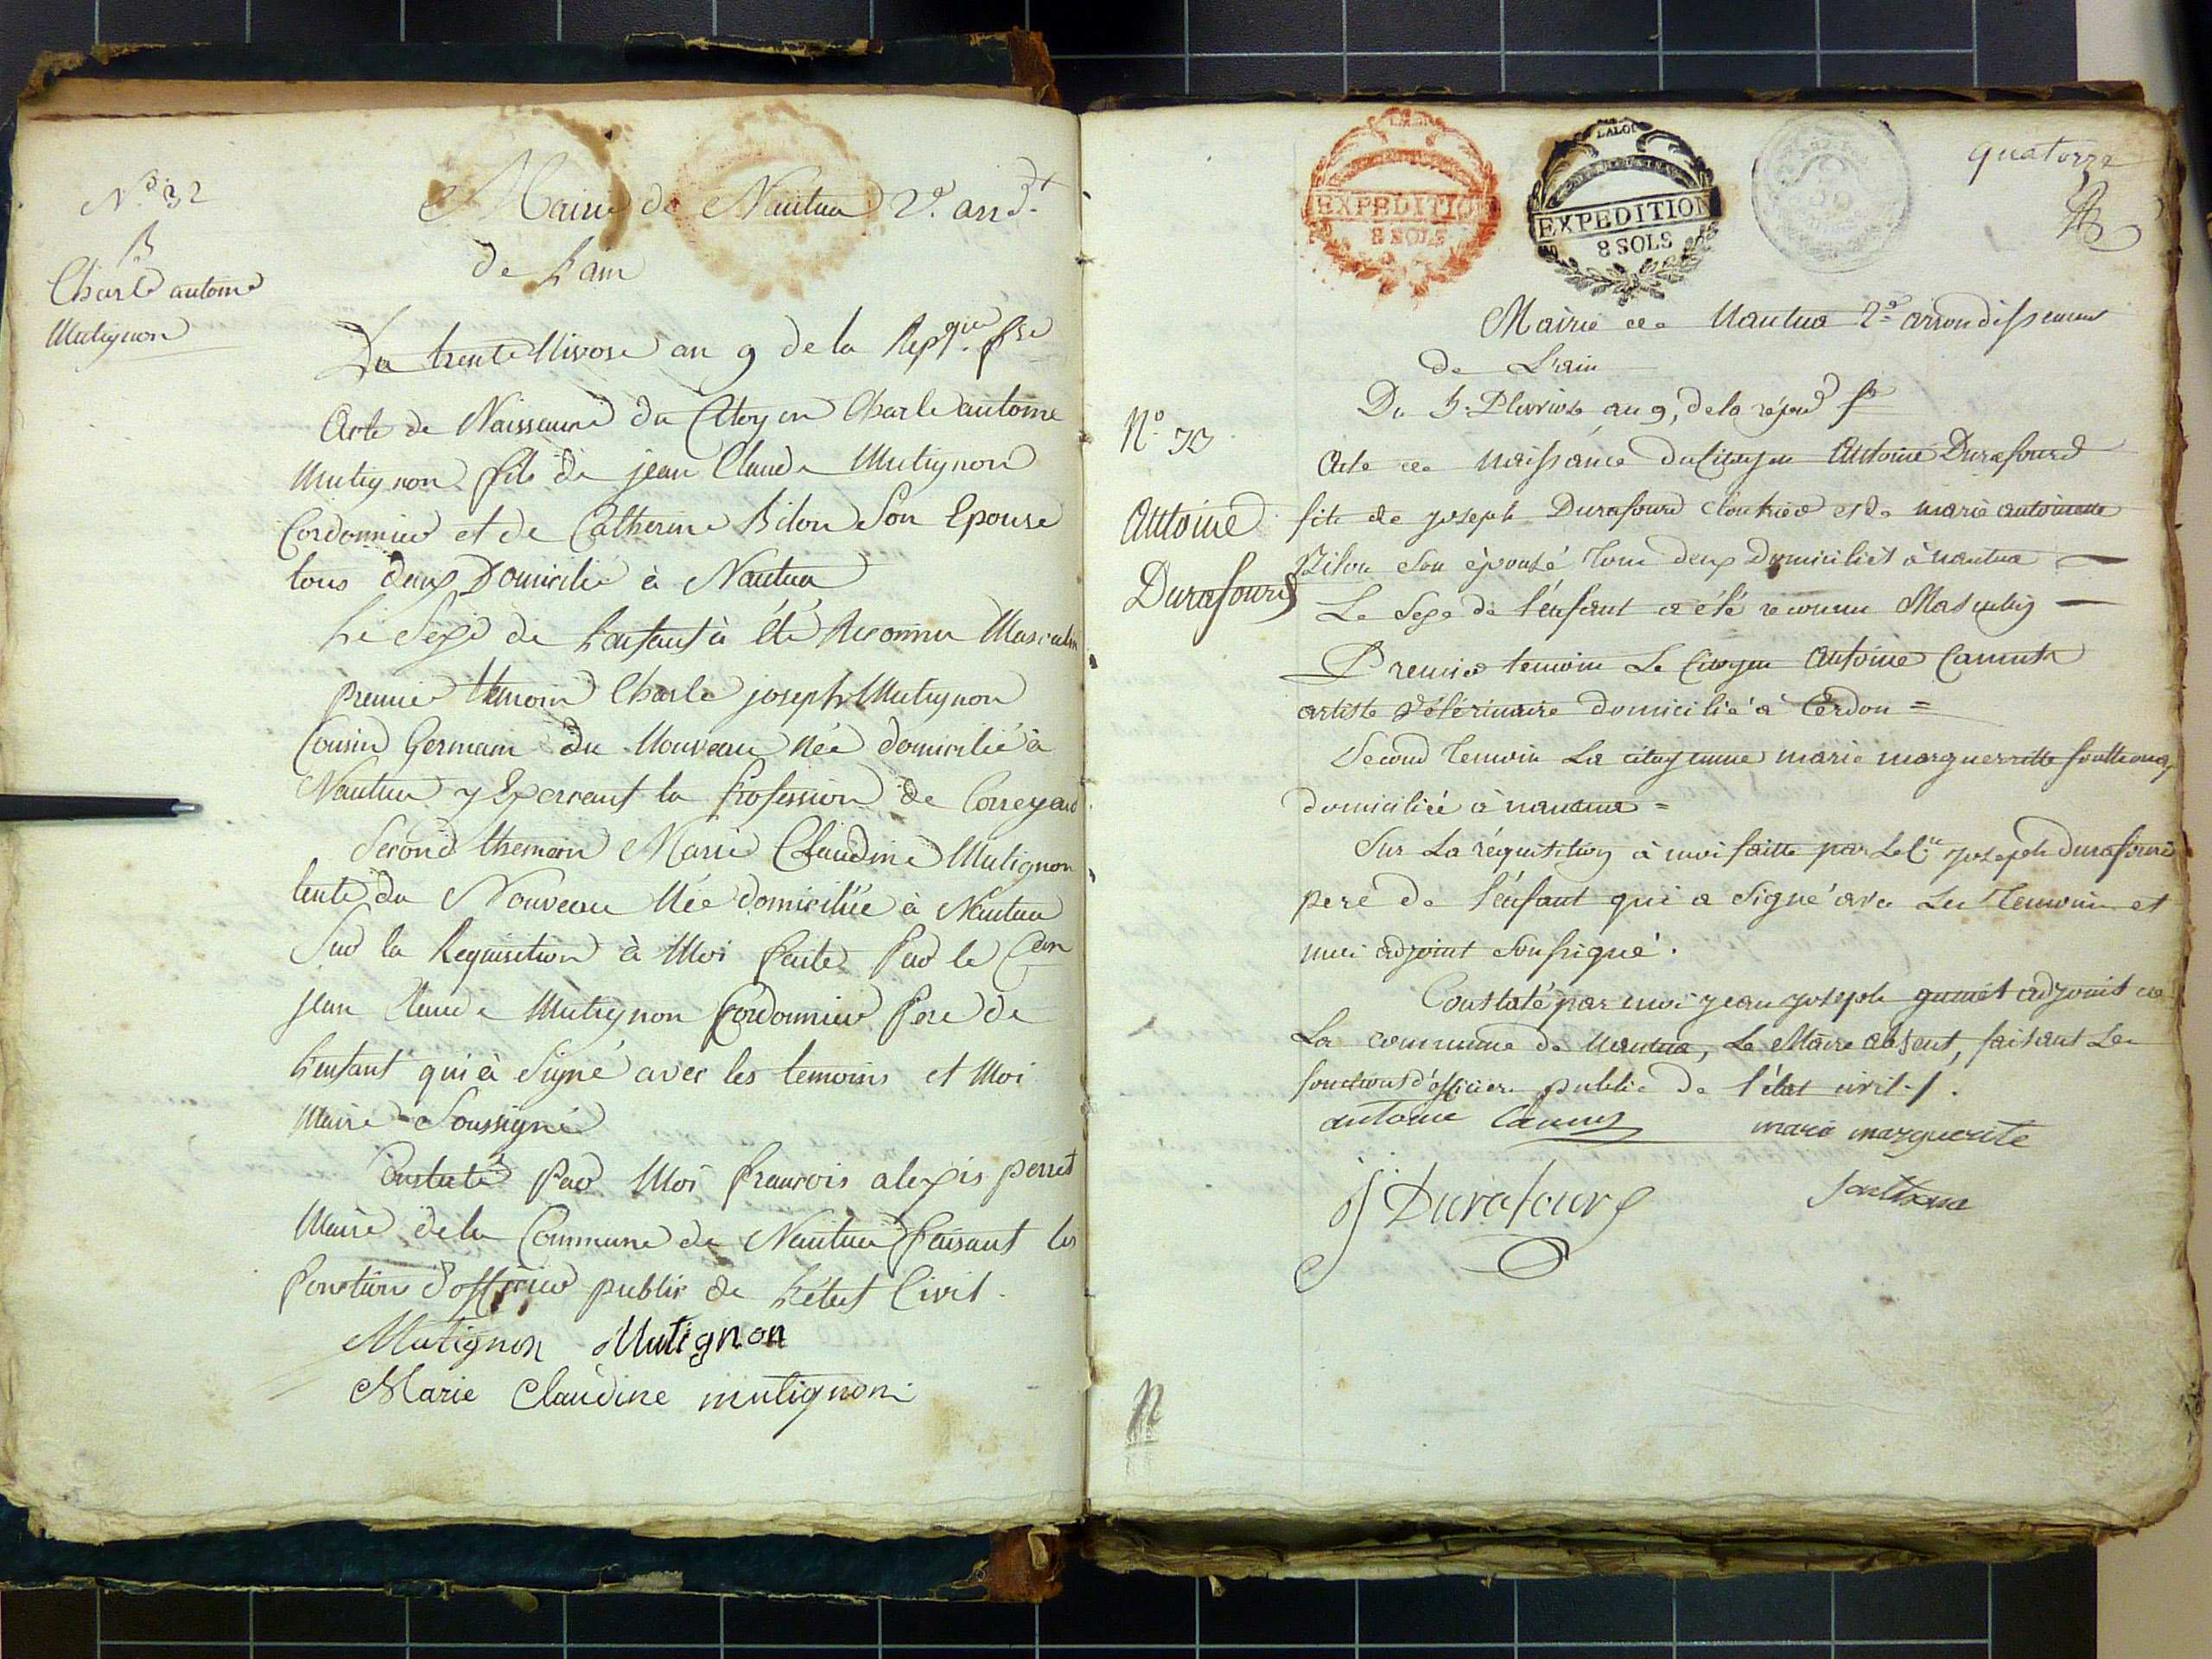 N.º 32
Charle antoine
Mutignon
Mairie de Nantua 2.e arrd.t
de Lain
Du trente Nivose an 9 de la Rep.que fse
Acte de Naissance du Citoyen Charle antoine
Mutignon fils de jean Claude Mutignon
Cordonnier et de Catherine Bilon Son Epouse
tous deux Domicilié à Nantua
Le Sexe de Lenfant à été Reconnu Masculin
premier themoin Charle joseph Mutignon
Cousin Germain du Nouveau née domicilié à
Nantua y Exerceant la profession de Correyeur
Second themoin Marie Claudine Mutignon
tente du Nouveau Née domiciliée à Nantua
Sur la Requisition à Moi faite Par le Cen
jean Claude Mutignon Cordonnier Pere de
Lenfant qui à Signé avec les temoins et Moi
Maire Soussigné
Constaté Par Moi francois alexis perret
Maire de la Commune de Nantua faisant les
fonction d'officier public de L'état Civil.
Mutignon Mutignon
Marie Claudine mutignon
LALOI
EXPEDITION
8 SOLS
EXPEDITION
8 SOLS
quatorze
Mairie de Nantua 2.e arrondissement
de L'ain
Du 5. Pluviose an 9, de la répud fse
N.º 33
Antoine
Durafourd
Acte de naissance du Citoyen Antoine Durafourd
fils de joseph Durafourd Cloutrier et de marie antoinette
Bilon son épouse tous deux domiciliés à nantua —
Le Sexe de l'énfant a été reconnu Masculin —
Premier temoin Le Citoyen Antoine Camuth
artiste Vétérinaire domicilié à Cerdon =
Second temoin La citoyenne marie marguerritte
domiciliée à nantua =
Sur La réquisition à moi faitte par Le C.en joseph Durafourd
pere de l'énfant qui a signé avec Les temoins et
moi adjoint soussigné.
Constaté par moi jean joseph gumet adjoint de
La commune de Nantua, Le Maire absent, faisant Les
fonctions d'officier public de l'état civil./.
antoine Camuz
marie marguerite
j Durafourd